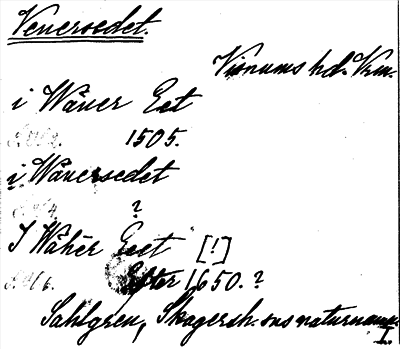 Venersedet.
Visnums hd. Vrm.
i Wäner Eet
1505.
i Wänersedet
?
I Wähēr Eeet [!]
Efter 1650. ?
Sahlgren, Skagersh:sns naturnamn
I.